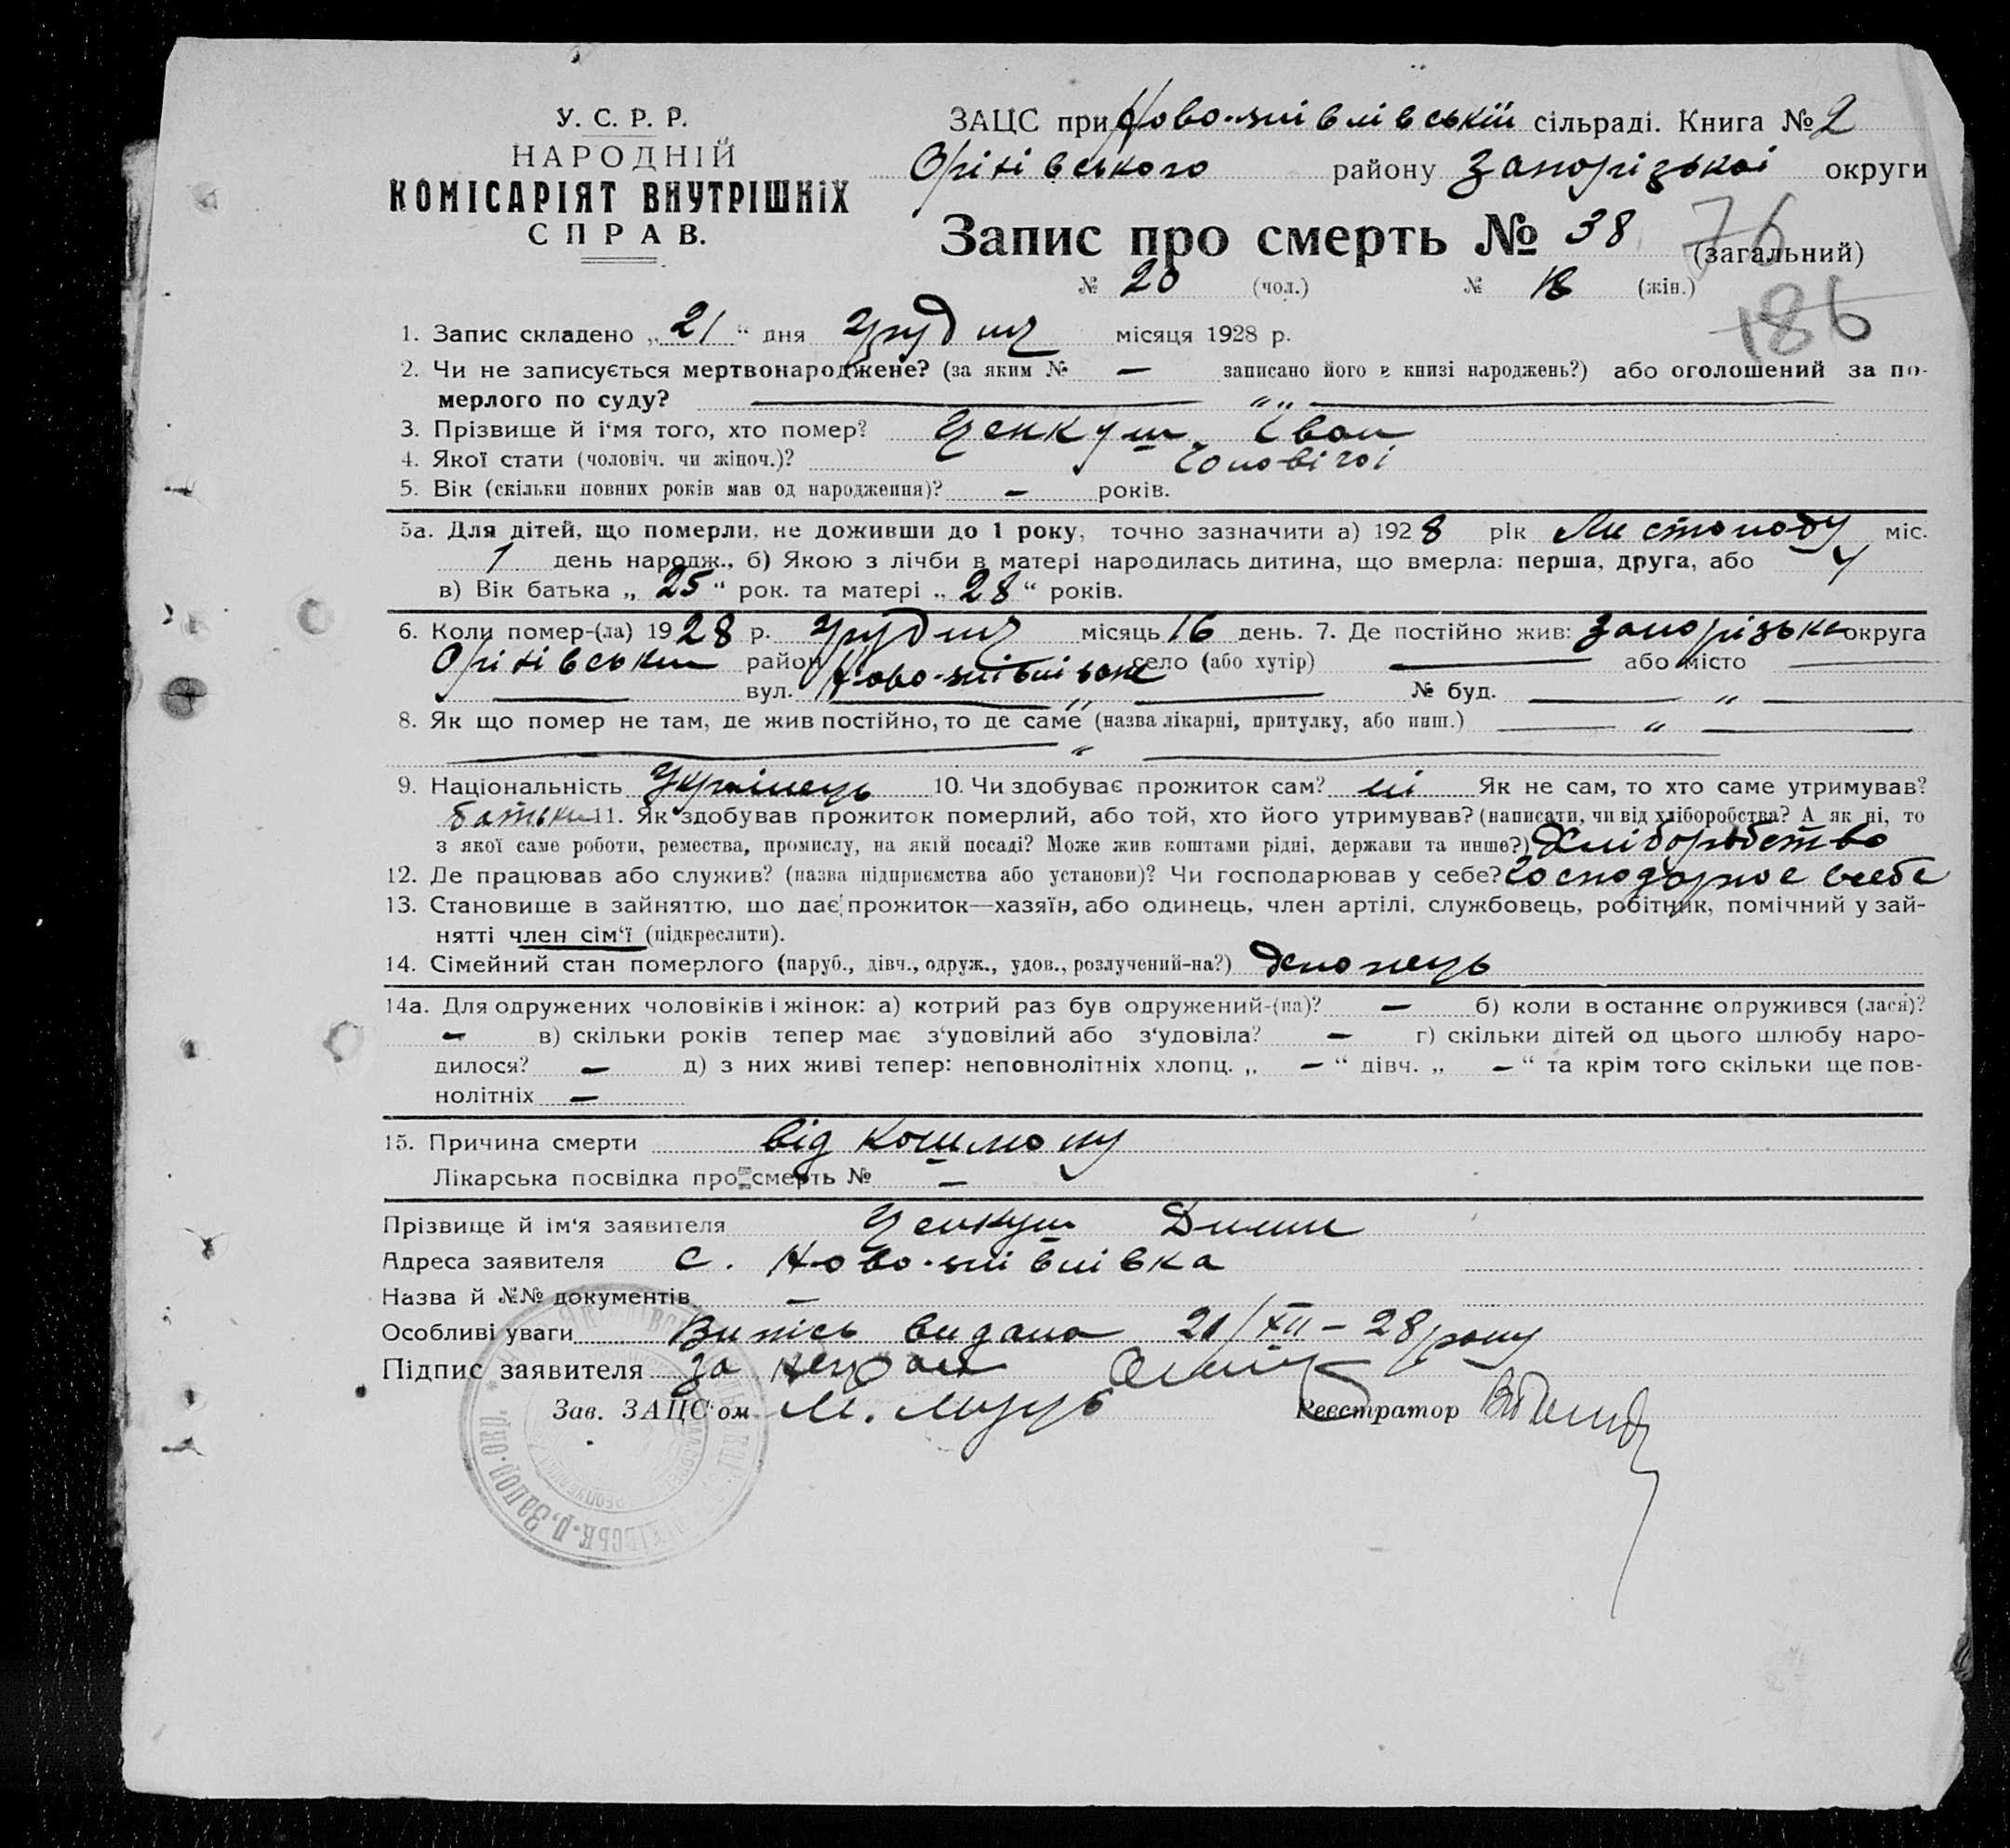 У. С. Р. Р.
НАРОДНІЙ
КОМІСАРІЯТ ВНУТРІШНІХ
СПРАВ.
ЗАЦС при сільраді. Книга № 2
Оріхівського району Запорізької округи
Запис про смерть № 38 (загальний)
76
№ 20 (чол.) № 18 (жін.)
186
1. Запис складено „21“ дня Грудня місяця 1928 р.
2. Чи не записується мертвонароджене? (за яким № — записано його в книзі народжень?) або оголошений за по-
мерлого по суду? — „ —
3. Прізвище й і'мя того, хто помер? Іван
4. Якої стати (чоловіч. чи жіноч.)? Чоловічої
5. Вік (скільки повних років мав од народження)? — років.
5а. Для дітей, що померли, не доживши до 1 року, точно зазначити а) 1928 рік Листопаду міс.
1 день народж., б) Якою з лічби в матері народилась дитина, що вмерла: перша, друга, або
в) Вік батька „25“ рок. та матері „28“ років.
6. Коли помер-(ла) 1928 р. Грудня місяць 16 день. 7. Де постійно жив: Запорізька округа
Оріхівський район село (або хутір) — або місто —
— вул. — „ — № буд. — „ —
8. Як що помер не там, де жив постійно, то де саме (назва лікарні, притулку, або инш.) — „ —
— „ —
9. Національність Українець 10. Чи здобуває прожиток сам? ні Як не сам, то хто саме утримував?
батьки 11. Як здобував прожиток померлий, або той, хто його утримував? (написати, чи від хліборобства? А як ні, то
з якої саме роботи, ремества, промислу, на якій посаді? Може жив коштами рідні, держави та инше?) Хліборобство
12. Де працював або служив? (назва підприємства або установи)? Чи господарював у себе? Господарює в себе
13. Становище в зайняттю, що дає прожиток—хазяїн, або одинець, член артілі, службовець, робітник, помічний у зай-
нятті член сім'ї (підкреслити).
14. Сімейний стан померлого (паруб., дівч., одруж., удов., розлучений-на?)
14а. Для одружених чоловіків і жінок: а) котрий раз був одружений-(на)? — б) коли в останнє одружився (лася)?
— в) скільки років тепер має з'удовілий або з'удовіла? — г) скільки дітей од цього шлюбу наро-
дилося? — д) з них живі тепер: неповнолітніх хлопц. „ — “ дівч. „ — “ та крім того скільки ще пов-
нолітніх —
15. Причина смерти від кошлюку
Лікарська посвідка про смерть № —
Прізвище й ім'я заявителя
Адреса заявителя с.
Назва й №№ документів —
Особливі уваги Випісь видана 21/XII – 28 року
Підпис заявителя за
Зав. ЗАЦС'ом М. Реєстратор